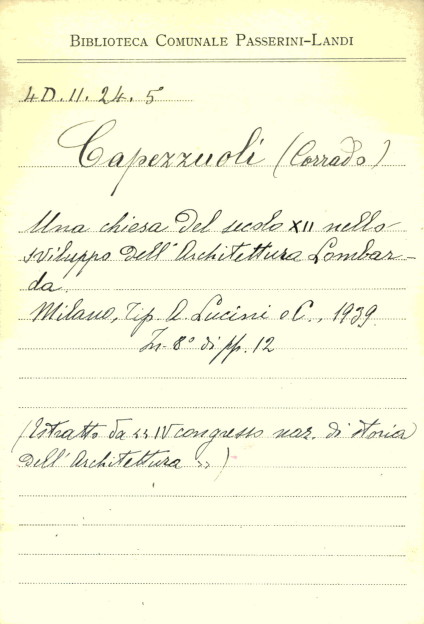 BIBLIOTECA COMUNALE PASSERINI-LANDI
4D.II.24.5
Capezzuoli (Corrado)
Una chiesa del secolo XII nello
sviluppo dell'Architettura Lombar-
da.
Milano, Tip. A. Lucini e C., 1939
In-8° di pp. 12
(Estratto da «IV congresso naz. di storia
dell'Architettura»)